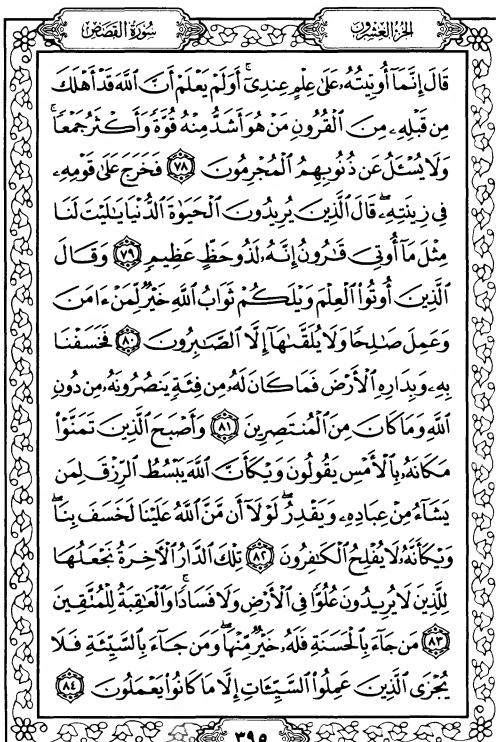 سُورَةُ القَصَصِ
الجُزْءُ العِشْرُونَ
قَالَ إِنَّمَآ أُوتِيتُهُۥ عَلَىٰ عِلْمٍ عِندِىٓ ۚ أَوَلَمْ يَعْلَمْ أَنَّ ٱللَّهَ قَدْ أَهْلَكَ
مِن قَبْلِهِۦ مِنَ ٱلْقُرُونِ مَنْ هُوَ أَشَدُّ مِنْهُ قُوَّةً وَأَكْثَرُ جَمْعًا ۚ
وَلَا يُسْـَٔلُ عَن ذُنُوبِهِمُ ٱلْمُجْرِمُونَ ٧٨ فَخَرَجَ عَلَىٰ قَوْمِهِۦ
فِى زِينَتِهِۦ ۖ قَالَ ٱلَّذِينَ يُرِيدُونَ ٱلْحَيَوٰةَ ٱلدُّنْيَا يَٰلَيْتَ لَنَا
مِثْلَ مَآ أُوتِىَ قَٰرُونُ إِنَّهُۥ لَذُو حَظٍّ عَظِيمٍ ٧٩ وَقَالَ
ٱلَّذِينَ أُوتُوا۟ ٱلْعِلْمَ وَيْلَكُمْ ثَوَابُ ٱللَّهِ خَيْرٌ لِّمَنْ ءَامَنَ
وَعَمِلَ صَٰلِحًا وَلَا يُلَقَّىٰهَآ إِلَّا ٱلصَّٰبِرُونَ ٨٠ فَخَسَفْنَا
بِهِۦ وَبِدَارِهِ ٱلْأَرْضَ فَمَا كَانَ لَهُۥ مِن فِئَةٍ يَنصُرُونَهُۥ مِن دُونِ
ٱللَّهِ وَمَا كَانَ مِنَ ٱلْمُنتَصِرِينَ ٨١ وَأَصْبَحَ ٱلَّذِينَ تَمَنَّوْا۟
مَكَانَهُۥ بِٱلْأَمْسِ يَقُولُونَ وَيْكَأَنَّ ٱللَّهَ يَبْسُطُ ٱلرِّزْقَ لِمَن
يَشَآءُ مِنْ عِبَادِهِۦ وَيَقْدِرُ ۖ لَوْلَآ أَن مَّنَّ ٱللَّهُ عَلَيْنَا لَخَسَفَ بِنَا ۖ
وَيْكَأَنَّهُۥ لَا يُفْلِحُ ٱلْكَٰفِرُونَ ٨٢ تِلْكَ ٱلدَّارُ ٱلْأَخِرَةُ نَجْعَلُهَا
لِلَّذِينَ لَا يُرِيدُونَ عُلُوًّا فِى ٱلْأَرْضِ وَلَا فَسَادًا ۚ وَٱلْعَٰقِبَةُ لِلْمُتَّقِينَ
٨٣ مَن جَآءَ بِٱلْحَسَنَةِ فَلَهُۥ خَيْرٌ مِّنْهَا ۖ وَمَن جَآءَ بِٱلسَّيِّئَةِ فَلَا
يُجْزَى ٱلَّذِينَ عَمِلُوا۟ ٱلسَّيِّـَٔاتِ إِلَّا مَا كَانُوا۟ يَعْمَلُونَ ٨٤
٣٩٥